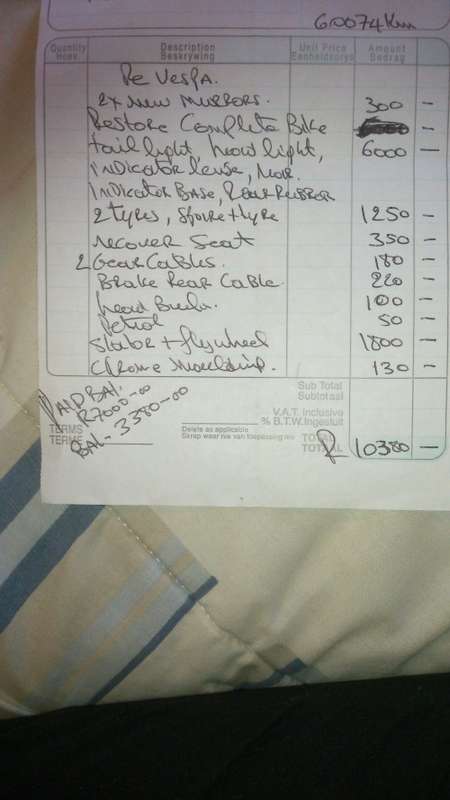 60074km
Quantity Description Unit Price Amount
Hoev. Beskrywing Eenheidsprys Bedrag
Re Vespa.
2x new mirrors. 300 -
Restore Complete Bike -
tail light, head light, 6000 -
Indicator lense,
Indicator Base, Rear Rubber
2 tyres, spare tyre 1250 -
recover Seat 350 -
2 Gear Cables. 180 -
Brake Rear Cable. 220 -
head 100 -
Petrol 50 -
Stator + flywheel 1800 -
Chrome Moulding. 130 -
Sub Total
Subtotaal
V.A.T. inclusive
% B.T.W. Ingesluit
Delete as applicable
Skrap waar nie van toepassing nie
TOTAL
TOTAAL R 10380 -
PAID BAL.
R7000-00
BAL- 3380-00
TERMS
TERME